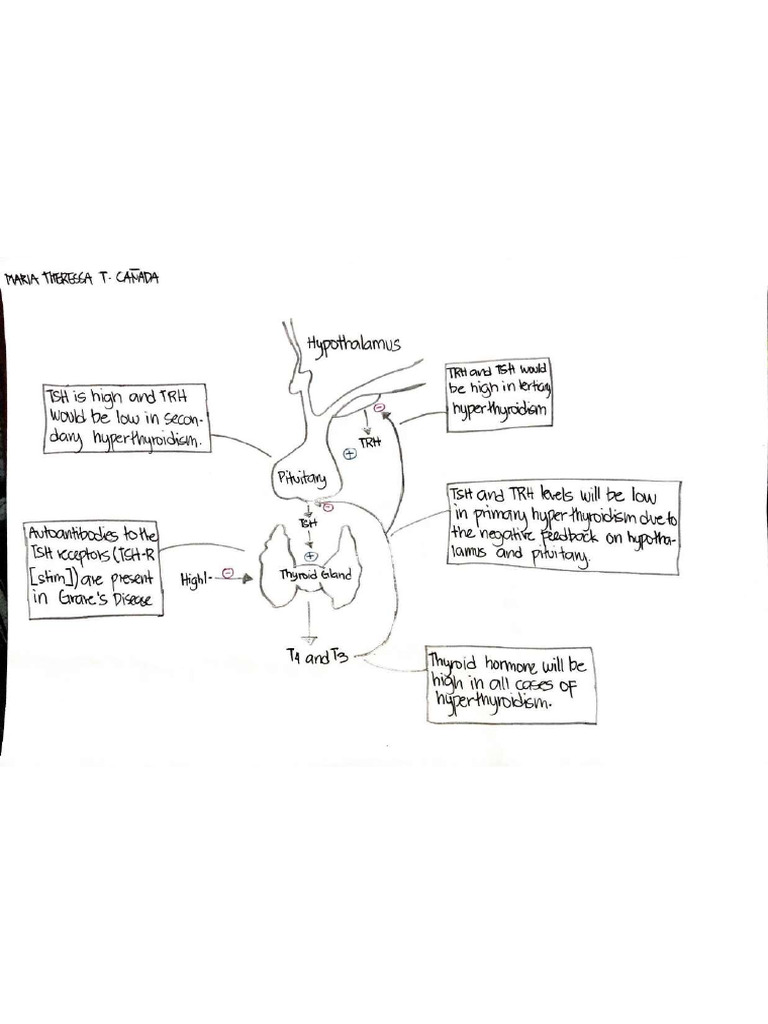 MARIA THERESSA T. CAÑADA
Hypothalamus
TSH is high and TRH
would be low in secon-
dary hyperthyroidism.
TRH and TSH would
be high in tertiary
hyperthyroidism
⊖
TRH
⊕
Pituitary
⊖
TSH
⊕
TSH and TRH levels will be low
in primary hyperthyroidism due to
the negative feedback on hypotha-
lamus and pituitary.
Autoantibodies to the
TSH receptors (TSH-R
[stim]) are present
in Grave's Disease
High I-
⊖
Thyroid Gland
T4 and T3
Thyroid hormone will be
high in all cases of
hyperthyroidism.